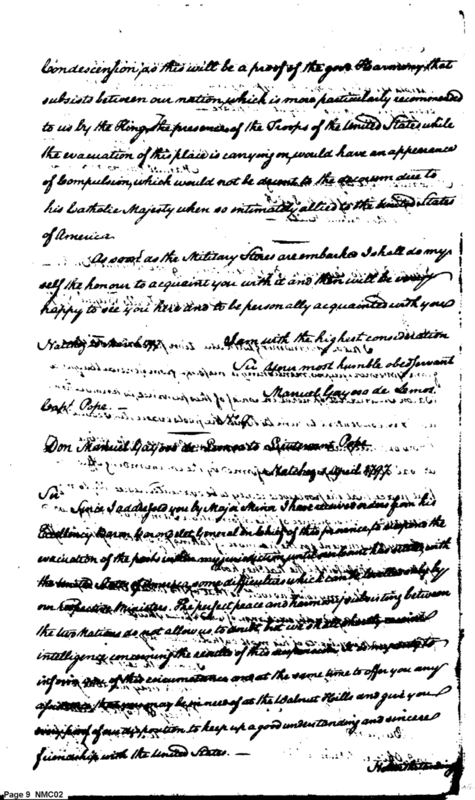 Condescension, as this will be a proof of the good Harmony that
subsists between our nation, which is more particularly recommended
to us by the King, the presence of the Troops of the United States, while
the evacuation of this place is carying on, would have an appearance
of Compulsion, which would not be to the decorum due to
his Catholic Majesty when so intimately allied to the United States
of America
As soon as the Military Stores are embarked I shall do my
self the honour to acquaint you with it and then will be very
happy to see you here and to be personally acquainted with you
Natchez I am with the highest consideration
Sir Your most humble obed. Servant
Manuel Gayoso de Lemos
Capt. Pope. —
Don Manuel Gayoso de Lemos to Lieutenant Pope
Natchez April 1797
Sir Since I addressed you by Major Minor I have received orders from his
Excellency Baron General in Chief of this province, to suspend the
evacuation of the posts until with
the United States of America some difficulties which can be only by
our respective Ministers. The perfect peace and harmony subsisting between
the two Nations do not allow us to doubt but we shall shortly receive
intelligence concerning the results of this It is my duty to
inform you of this circumstance and at the same time to offer you any
you may be in need of at the Walnut Hills and give you
every proof of our disposition to keep up a good understanding and sincere
friendship with the United States. —
Page 9 NMC02